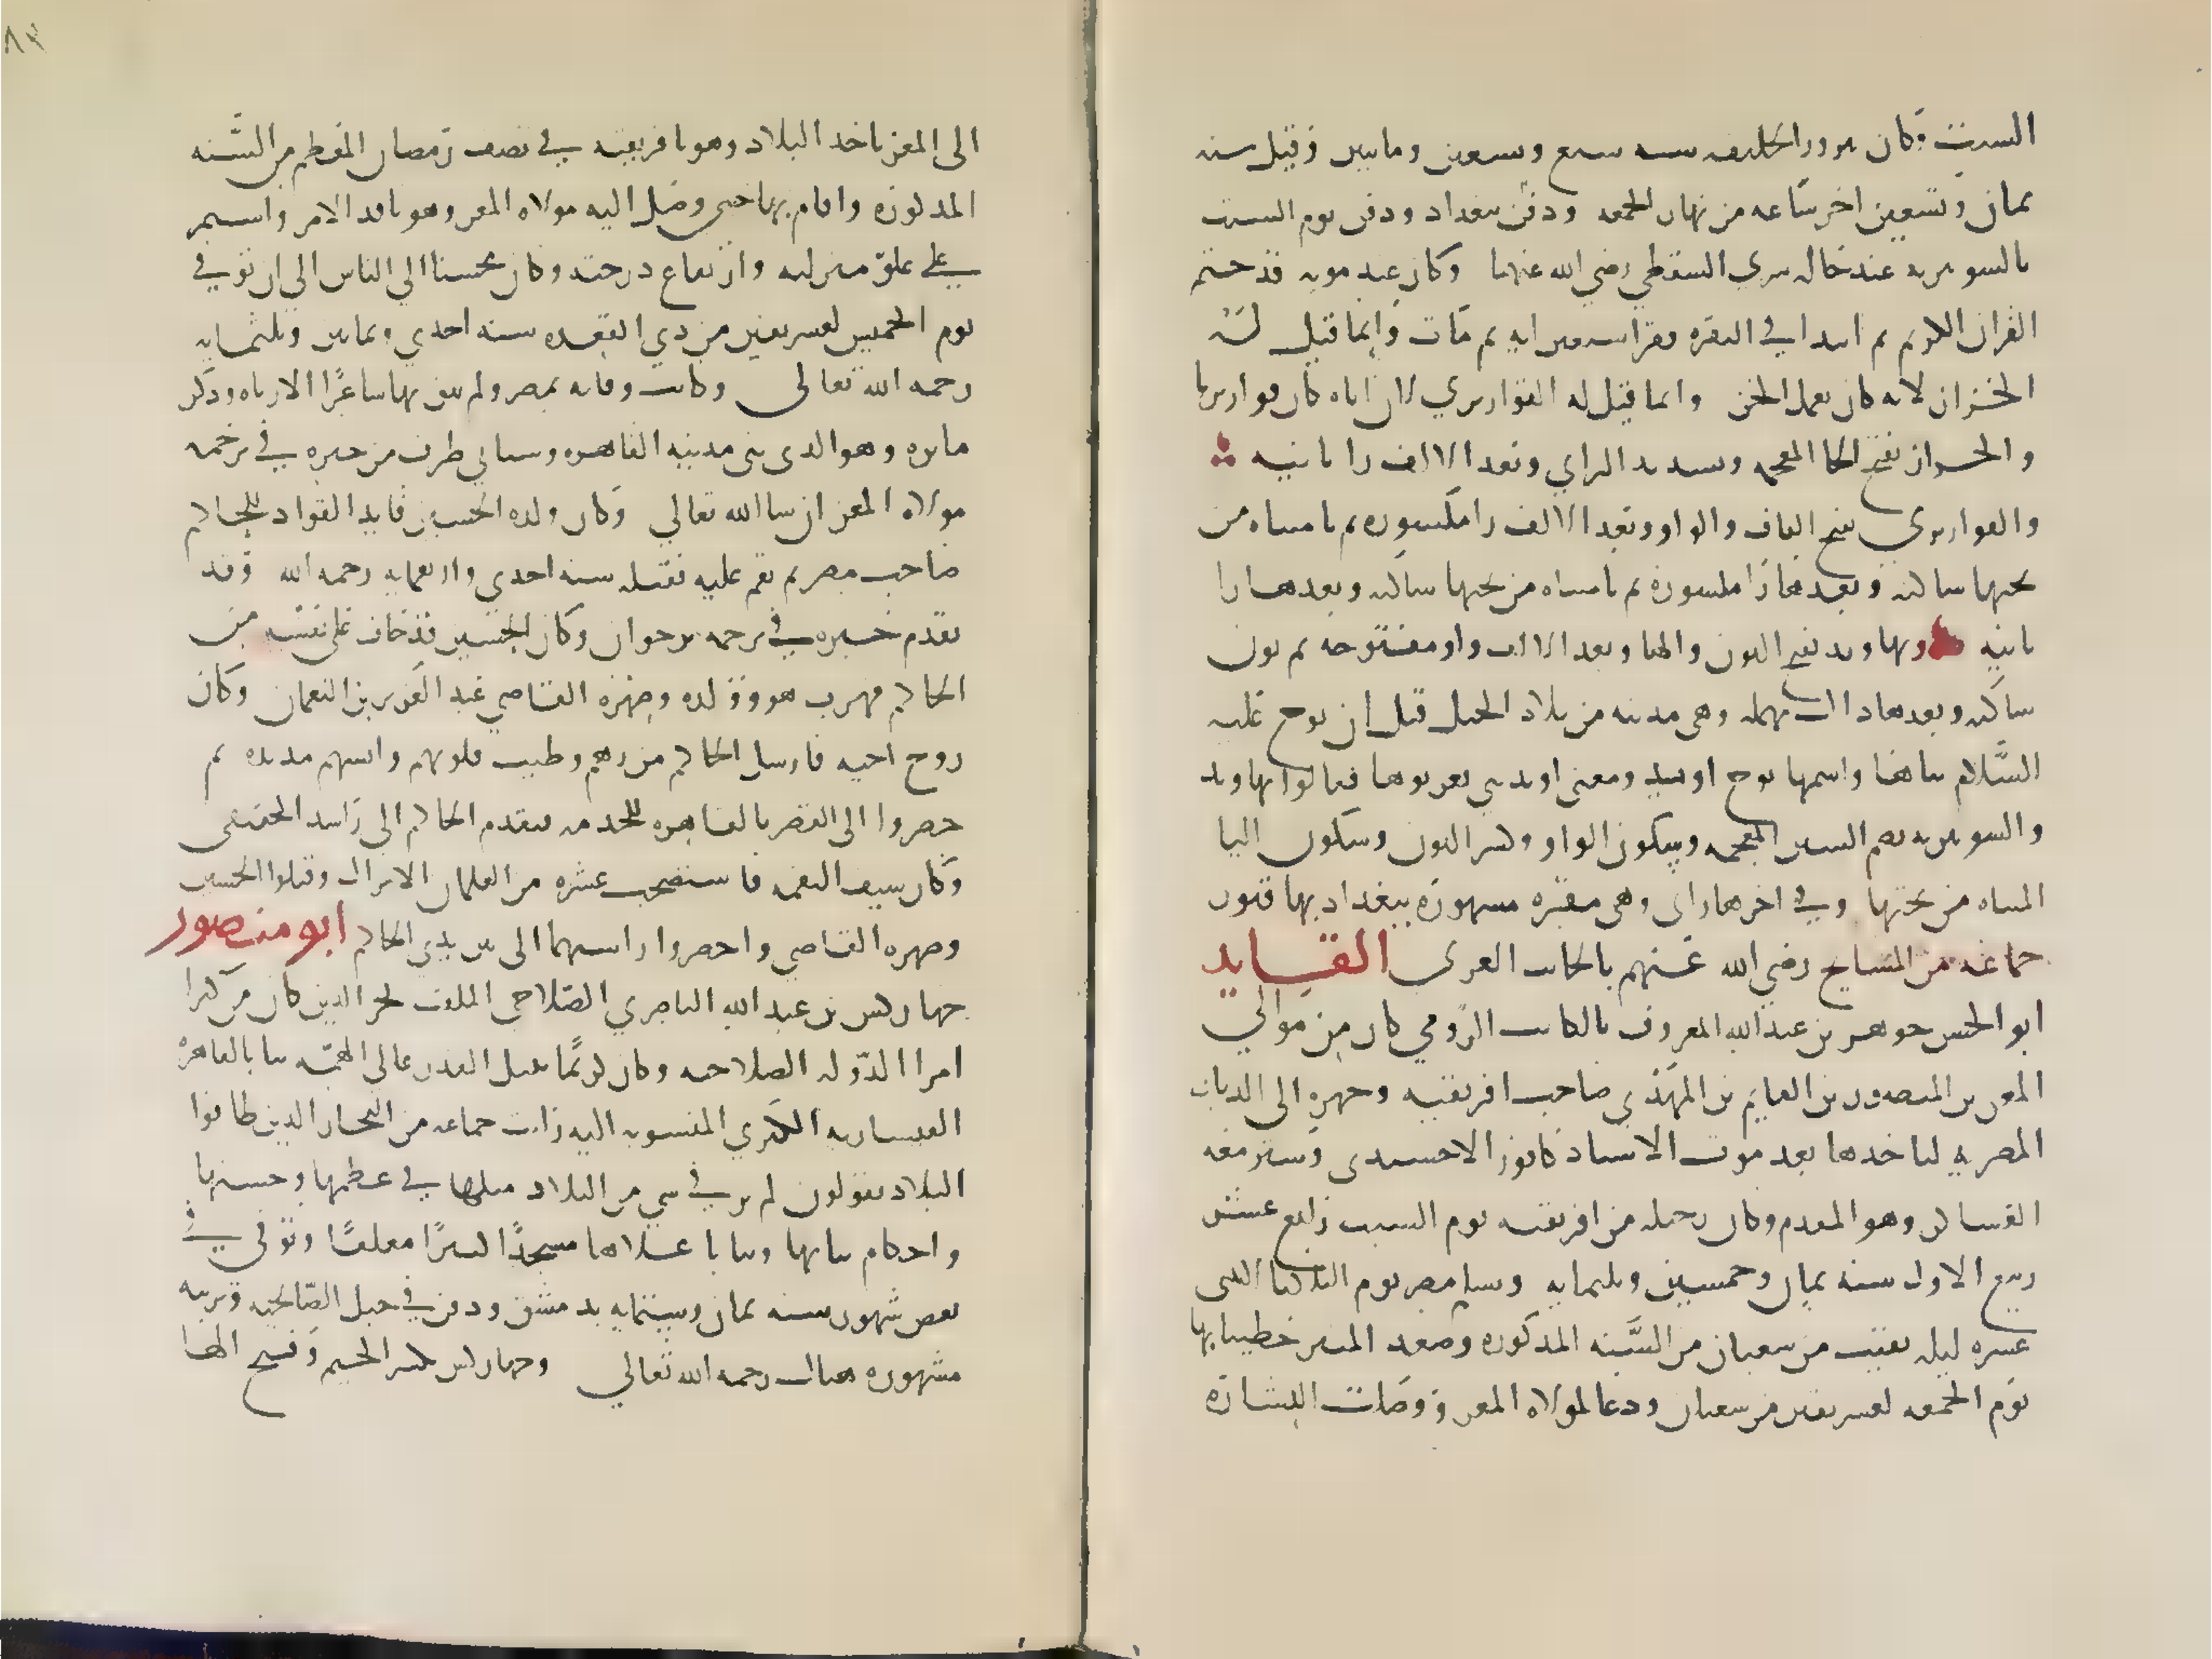 السبت وكان نيروز الخليفه سنه سبع وتسعين ومايتين وقيل سنه
ثمان وتسعين اخر ساعه من نهار الجمعه ودفن ببغداد ودفن يوم السبت
بالشونيزيه عند خاله سري السقطي رضي الله عنهما وكان عند موته قد ختم
القران الكريم ثم ابتدا في البقره فقرا سبعين ايه ثم مات وانما قيل له
الخزاز لانه كان يعمل الخز وانما قيل له القواريري لان اباه كان قواريريا
والخزاز بفتح الخا المعجمه وتشديد الزاي وبعد الالف زا ثانيه
والقواريري بفتح القاف والواو وبعد الالف را مكسوره ثم يا مثناه من
تحتها ساكنه وبعدها را مكسوره ثم يا مثناه من تحتها ساكنه وبعدها را
ثانيه ونهاوند بفتح النون والها وبعد الالف واو مفتوحه ثم نون
ساكنه وبعدها دال مهمله وهي مدينه من بلاد الجبل قيل ان نوح عليه
السلام بناها واسمها نوح اوند ومعنى اوند بني فعربوها فقالوا نهاوند
والشونيزيه بضم الشين المعجمه وسكون الواو وكسر النون وسكون اليا
المثناه من تحتها وفي اخرها زاي وهي مقبره مشهوره ببغداد بها قبور
جماعه من المشايخ رضي الله عنهم بالجانب الغربي القايد
ابو الحسن جوهر بن عبد الله المعروف بالكاتب الرومي كان من موالي
المعز بن المنصور بن القايم بن المهدي صاحب افريقيه وجهزه الى الديار
المصريه لياخذها بعد موت الاستاذ كافور الاخشيدي وسير معه
العساكر وهو المقدم وكان رحيله من افريقيه يوم السبت رابع عشر
ربيع الاول سنه ثمان وخمسين وثلثمايه وتسلم مصر يوم الثلاثا لاثنتي
عشره ليله بقيت من شعبان من السنه المذكوره وصعد المنبر خطيبا بها
يوم الجمعه لعشر بقين من شعبان ودعا لمولاه المعز ووصلت البشاره
الى المعز باخذ البلاد وهو بافريقيه في نصف رمضان المعظم من السنه
المذكوره واقام بها حتى وصل اليه مولاه المعز وهو نافذ الامر واستمر
على علو منزلته وارتفاع درجته وكان محسنا الى الناس الى ان توفي في
يوم الخميس لعشر بقين من ذي القعده سنه احدى وثمانين وثلثمايه
رحمه الله تعالى وكانت وفاته بمصر ولم يبق بها شاعرا الا رثاه وذكر
ماثره وهو الذي بنى مدينه القاهره وسياتي طرف من خبره في ترجمه
مولاه المعز ان شا الله تعالى وكان ولده الحسين قايد القواد للحاكم
صاحب مصر ثم نقم عليه فقتله سنه احدى واربعمايه رحمه الله وقد
تقدم خبره في ترجمه برجوان وكان الحسين قد خاف على نفسه من
الحاكم فهرب هو وولده وصهره القاضي عبد العزيز بن النعمان وكان
زوج اخته فارسل الحاكم من ردهم وطيب قلوبهم وانسهم مديده ثم
حضروا الى القصر بالقاهره للخدمه فتقدم الحاكم الى راشد الحقيقي
وكان سيف النقمه فاستصحب عشره من الغلمان الاتراك وقتلوا الحسين
وصهره القاضي واحضروا راسيهما الى بين يدي الحاكم ابو منصور
جهاركس بن عبد الله الناصري الصلاحي الملقب فخر الدين كان من كبرا
امرا الدوله الصلاحيه وكان كريما نبيل القدر عالي الهمه بنا بالقاهره
القيساريه الكبرى المنسوبه اليه رايت جماعه من التجار الذين طافوا
البلاد يقولون لم نر في شي من البلاد مثلها في عظمها وحسنها
واحكام بنايها وبنا باعلاها مسجدا كبيرا معلقا وتوفي في
بعض شهور سنه ثمان وستمايه بدمشق ودفن في جبل الصالحيه وتربته
مشهوره هناك رحمه الله تعالى وجهاركس بكسر الجيم وفتح الها